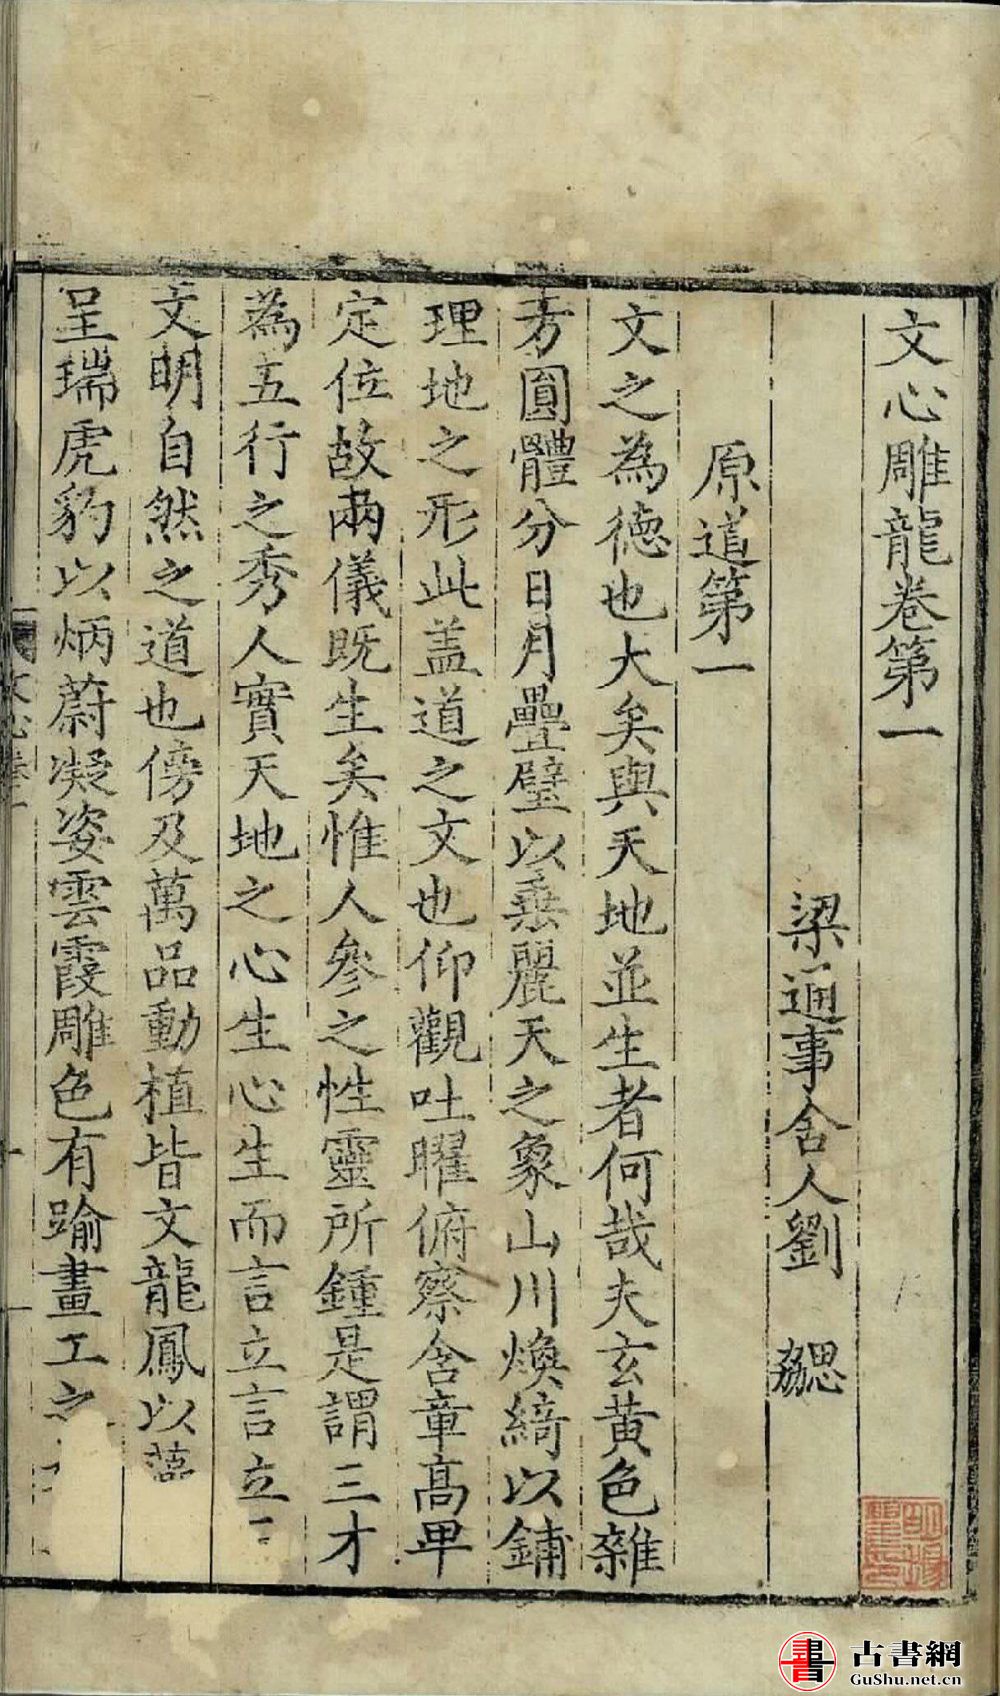 文心雕龍卷第一
梁通事舍人劉 勰
原道第一
文之為德也大矣與天地並生者何哉夫玄黃色雜
方圓體分日月疊璧以垂麗天之象山川煥綺以鋪
理地之形此盖道之文也仰觀吐曜俯察含章高卑
定位故兩儀既生矣惟人參之性靈所鍾是謂三才
為五行之秀人實天地之心生心生而言立言立
文明自然之道也傍及萬品動植皆文龍鳳以藻
呈瑞虎豹以炳蔚凝姿雲霞雕色有踰畫工之
古書網
GuShu.net.cn